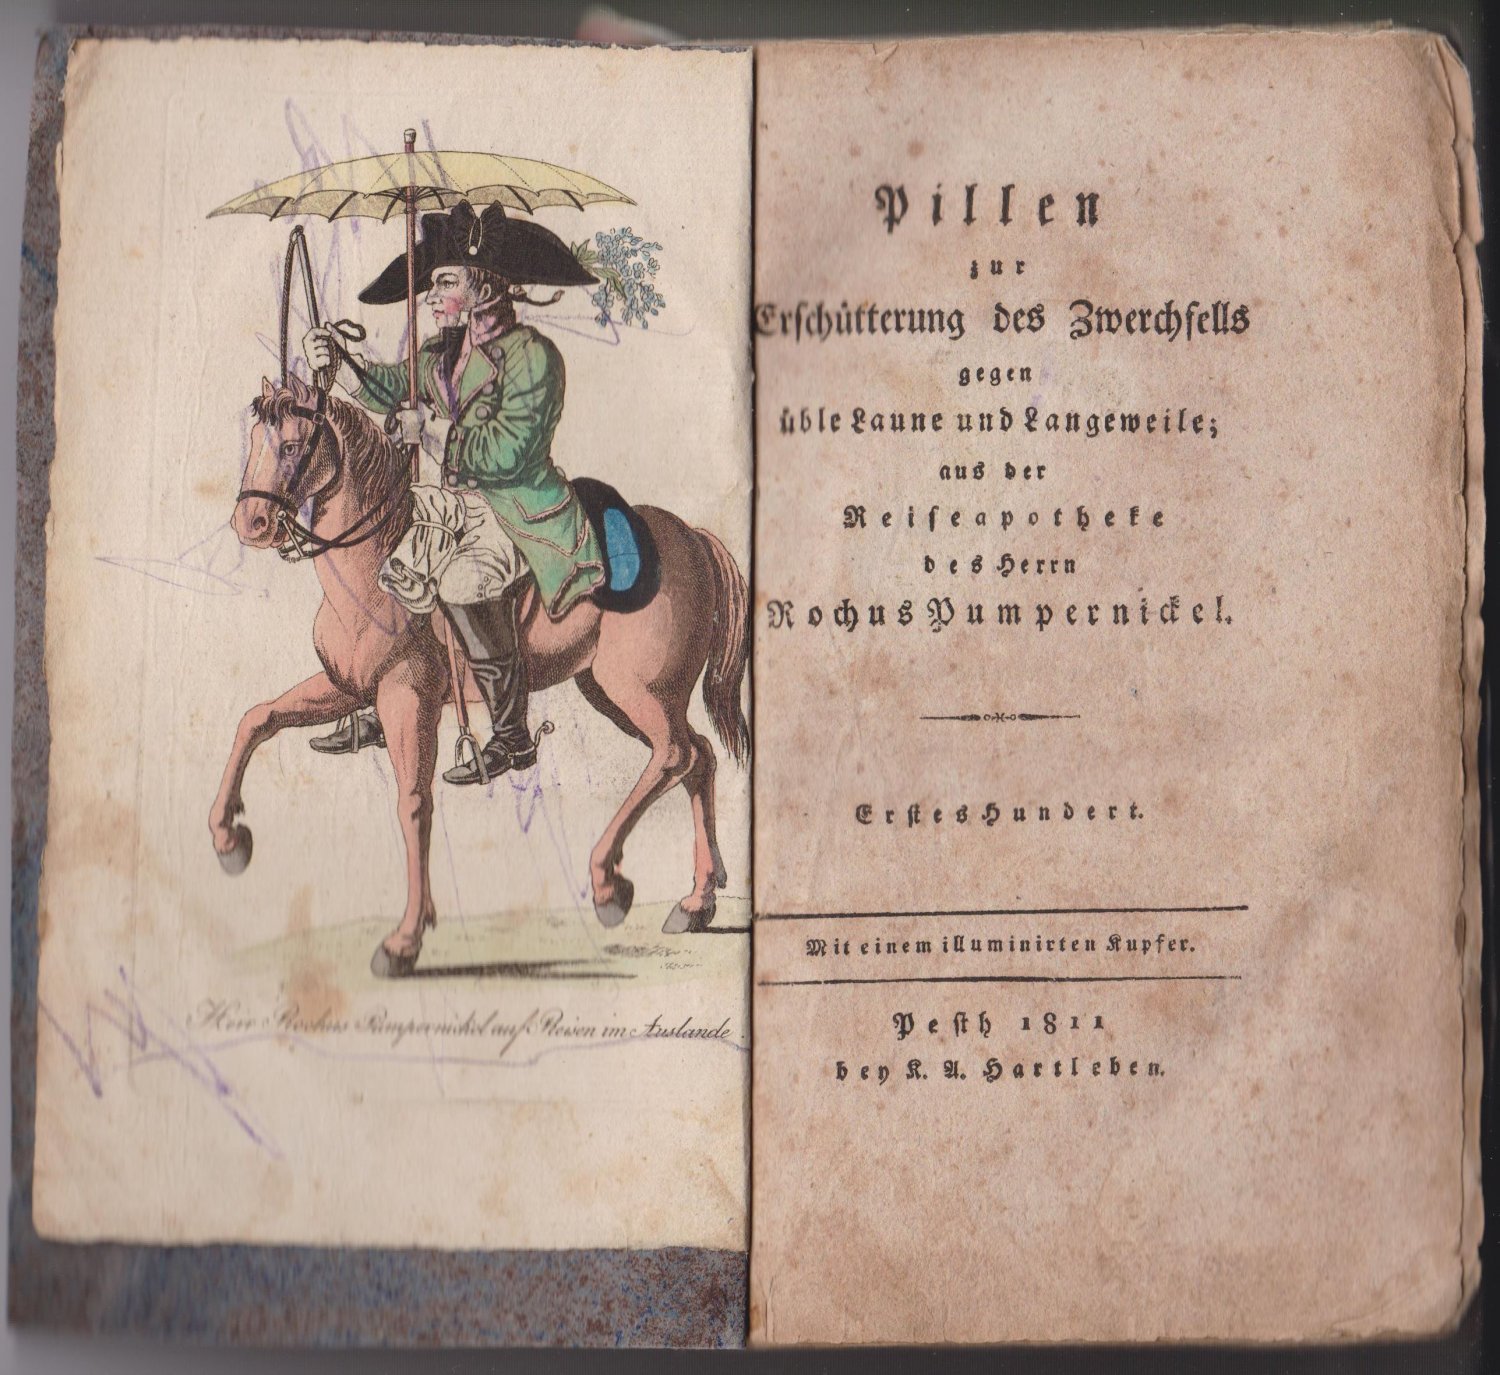 Herr Rochus Pumpernickel auf Reisen im Auslande.
Pillen
zur
Erschütterung des Zwerchfells
gegen
üble Laune und Langeweile;
aus der
Reiseapotheke
des Herrn
Rochus Pumpernickel.
Erstes Hundert.
Mit einem illuminirten Kupfer.
Pesth 1811
bey K. A. Hartleben.